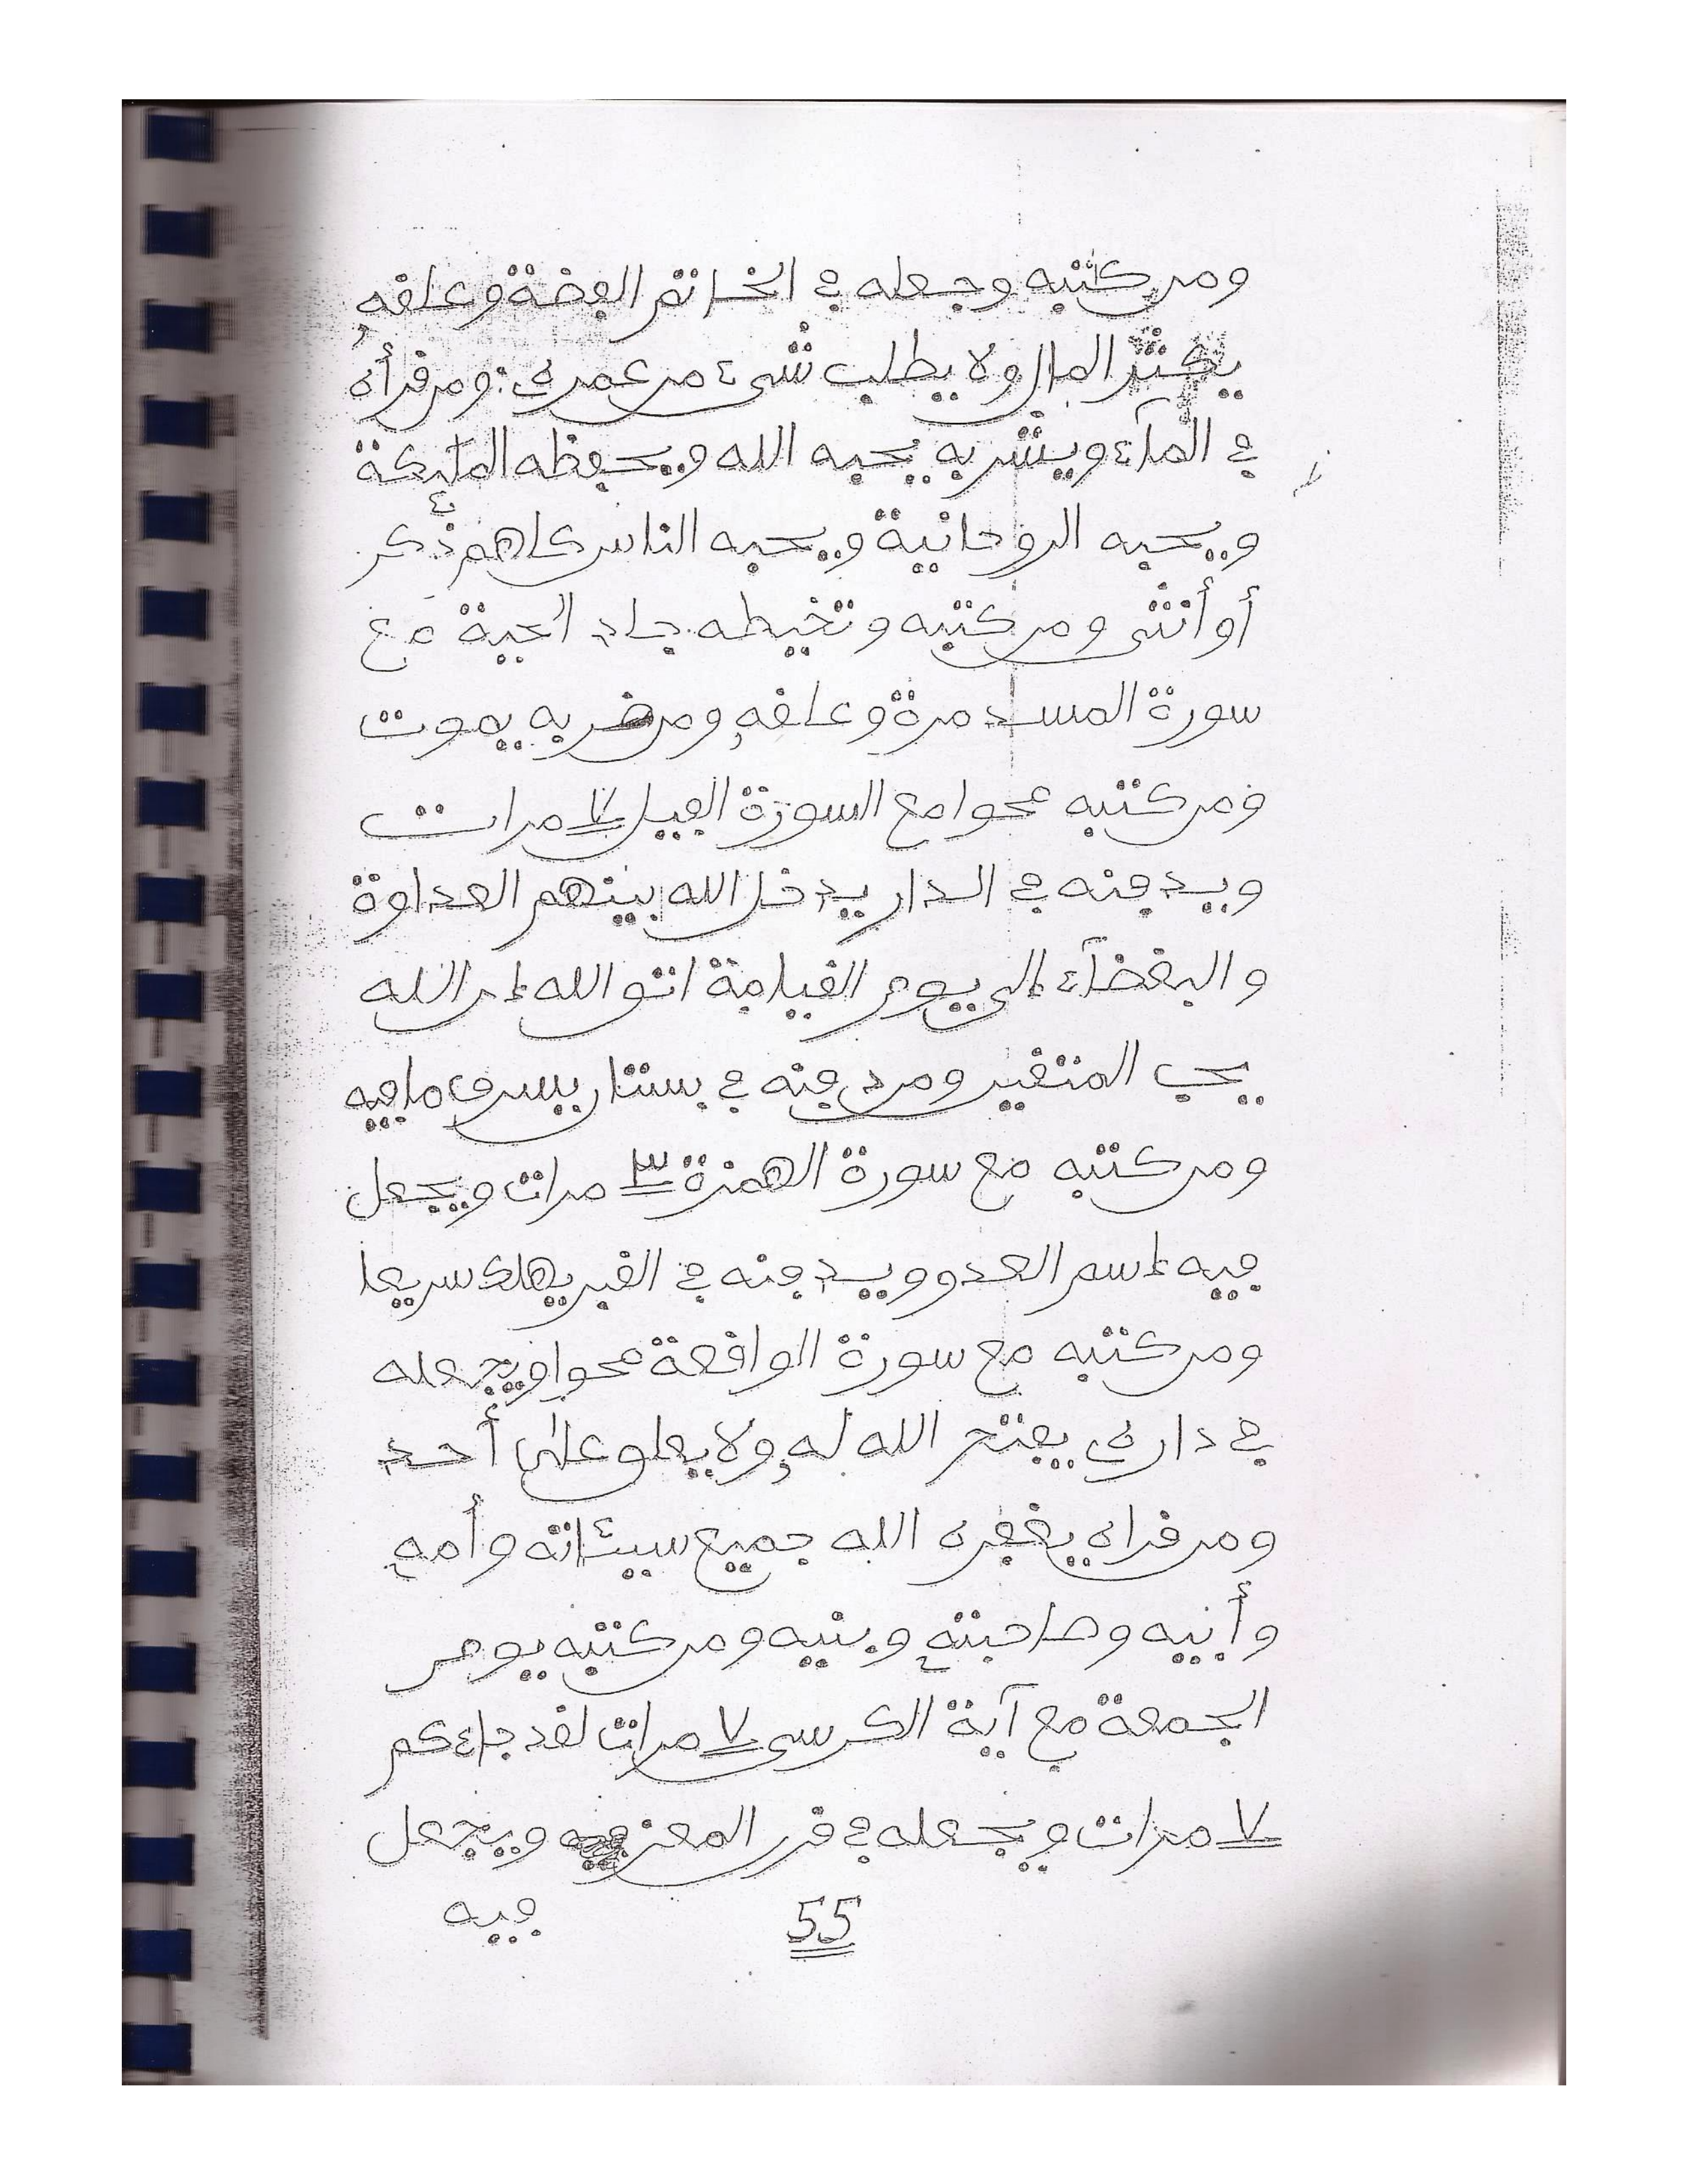 ومن كتبه وجعله في الخاتم الفضة وعلقه
يكثر المال ولا يطلب شىء من عمره: ومن قرأه
في المآء ويشربه يحبه الله ويحفظه الملئكة
ويحبه الروحانية ويحبه الناس كلهم ذكر
أو أنثى ومن كتبه وتخيطه جلد الحية مع
سورة المسد مرة وعلقه ومن ضربه يموت
ومن كتبه محوا مع السورة الفيل ٧ مرات
ويدفنه في الدار يدخل الله بينهم العداوة
والبغضآء إلى يوم القيامة اتق الله إن الله
يحب المتقين ومن دفنه في بستان يسرق ما فيه
ومن كتبه مع سورة الهمزة ٣ مرات ويجعل
فيه إسم العدو ويدفنه في القبر يهلك سريعا
ومن كتبه مع سورة الواقعة محوا ويجعله
في داره يفتح الله له ولا يعلو على أحد
ومن قراه يغفره الله جميع سيئاته وأمه
وأبيه وصاحبته وبنيه ومن كتبه يوم
الجمعة مع آية الكرسى ٧ مرات لقد جاءكم
٧ مرات ويجعله في قرن المعز ويجعل
فيه
55